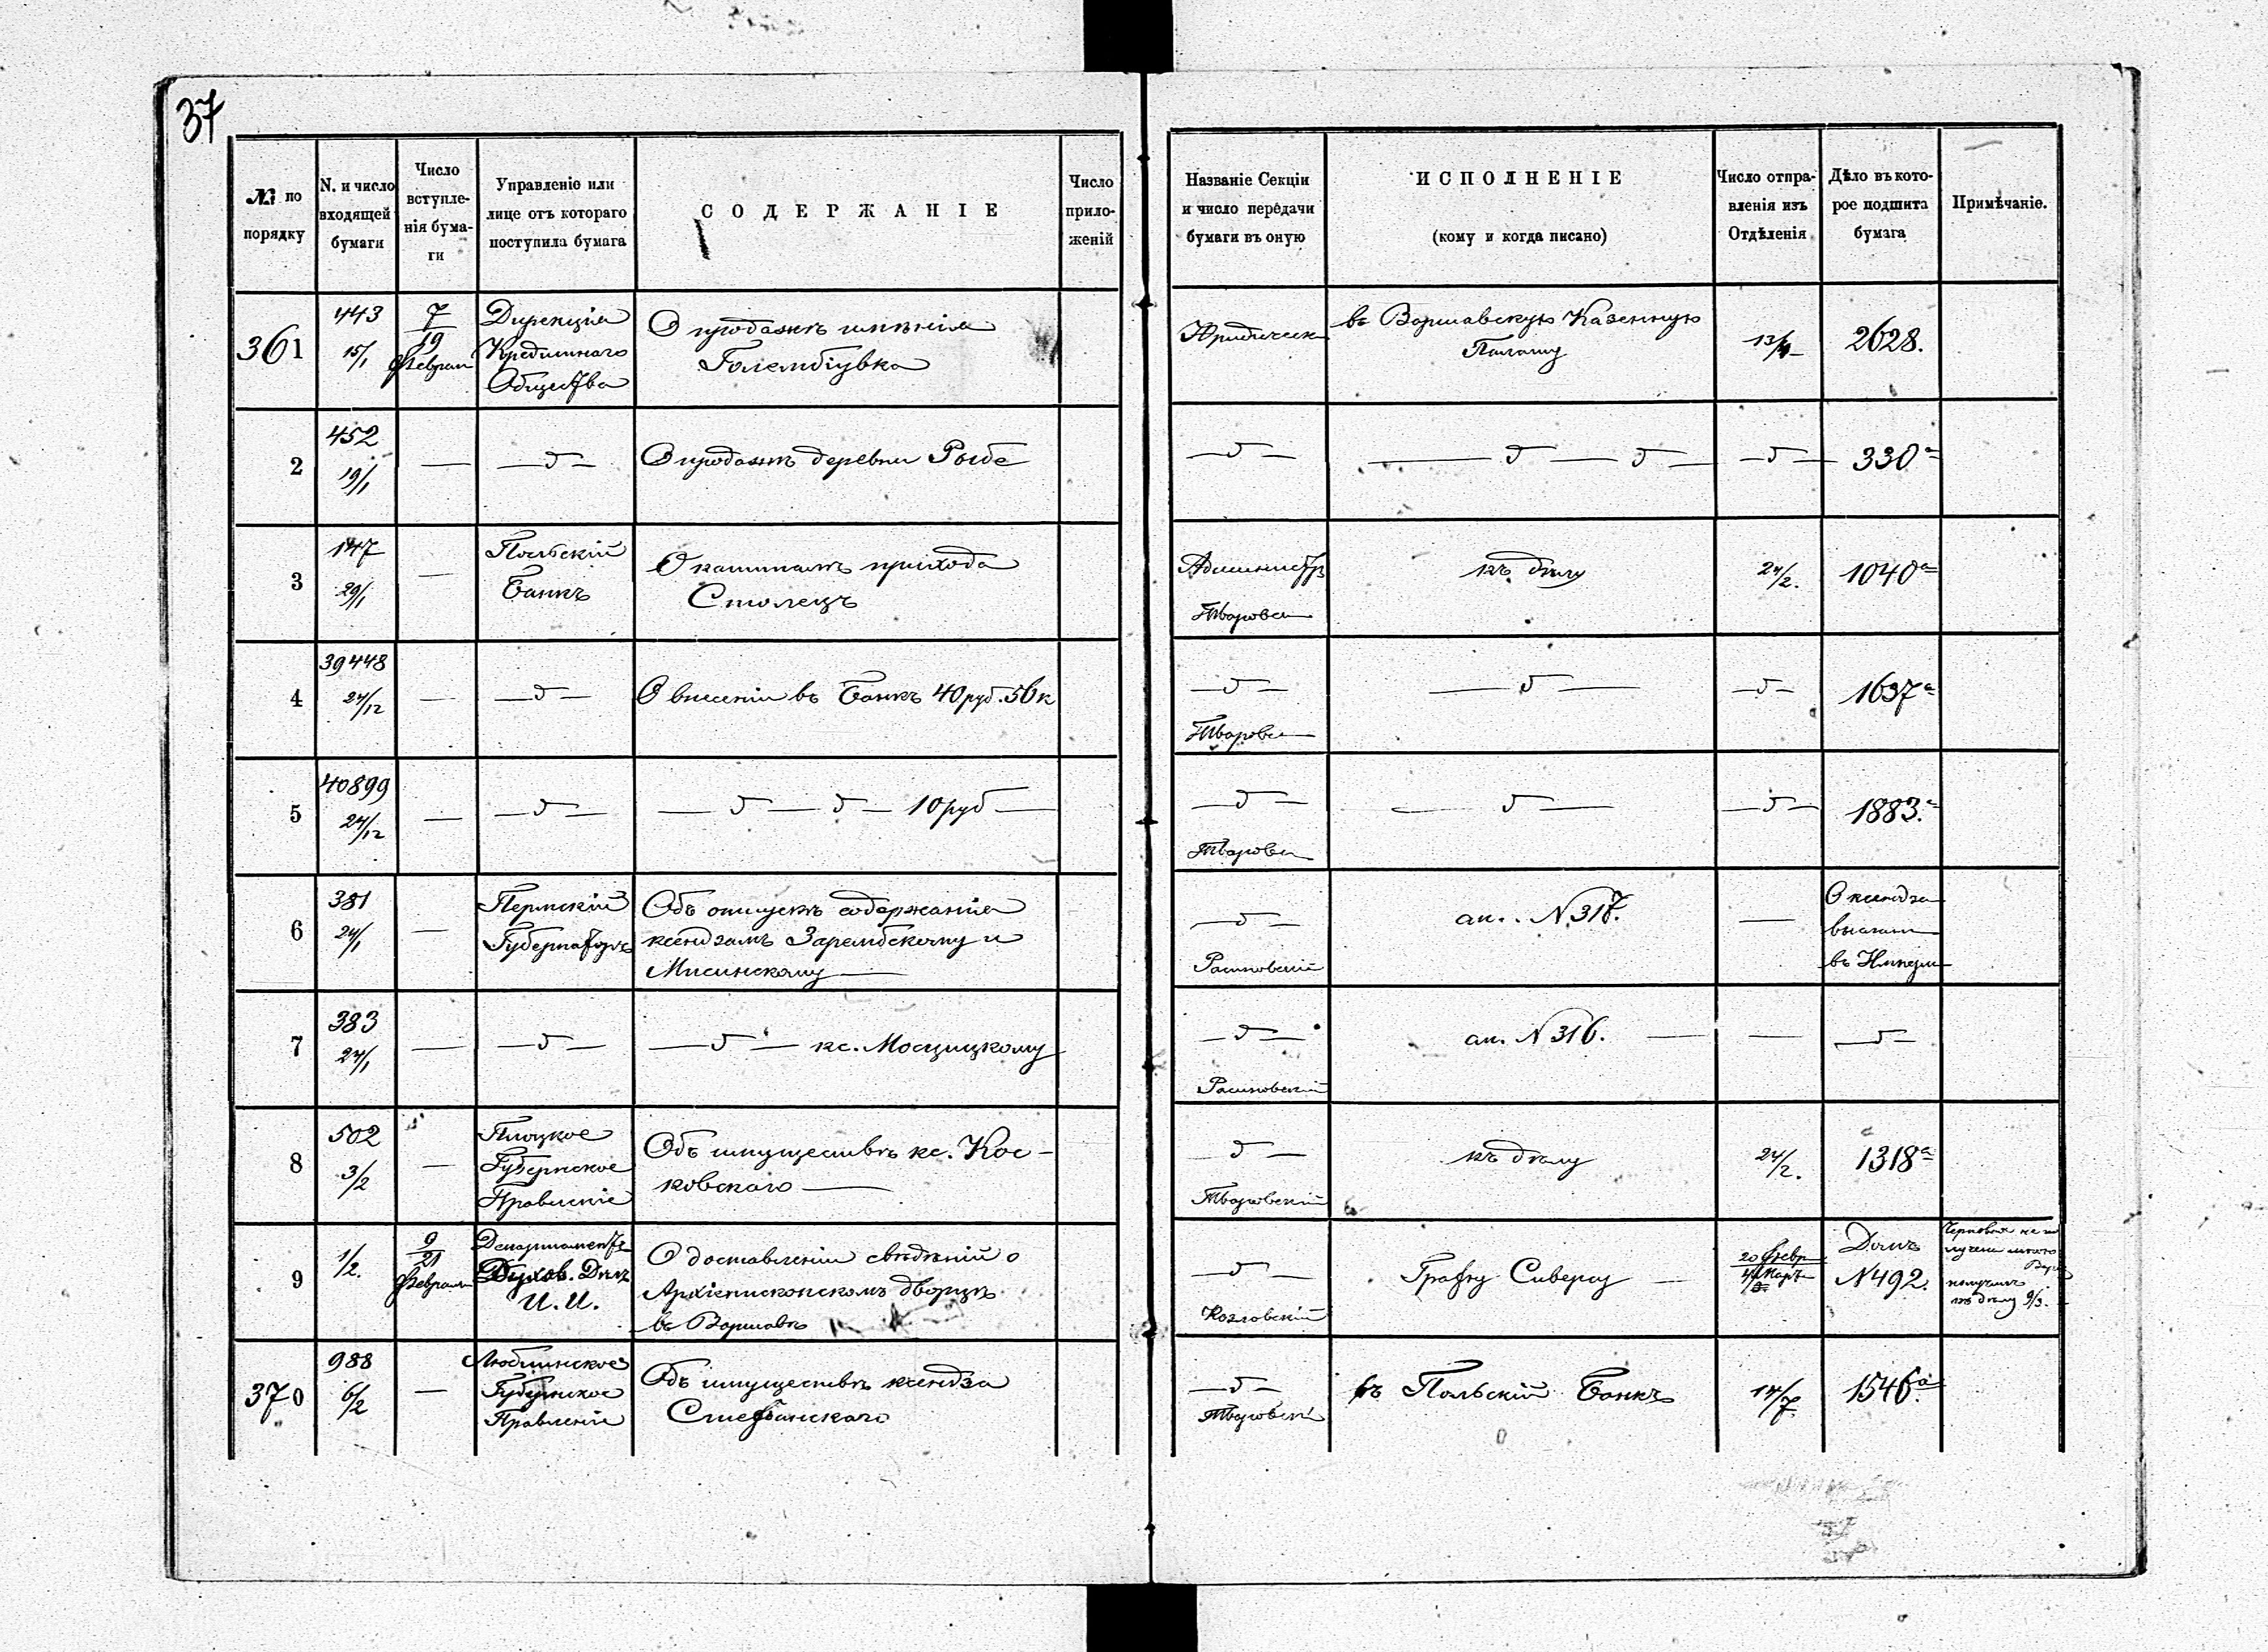 37
№ по порядку
N. и число входящей бумаги
Число вступле-нія бума-ги
Управленіе или лице отъ котораго поступила бумага
СОДЕРЖАНІЕ
Число прило-женій
Названіе Секціи и число передачи бумаги въ оную
ИСПОЛНЕНІЕ
(кому и когда писано)
Число отпра-вленія изъ Отдѣленія
Дѣло въ кото-рое подшита бумага
Примѣчаніе.
361
443
15/1
7/19 Февраля
Дирекція
Кредитнаго
Общества
О продажѣ имѣнія
Голембіувка
Юридическ
въ Варшавскую Казенную
Палату
2628.
2
452
19/1
— д —
О продажѣ деревни Рыбе
— д —
— д — д —
— д —
330а
3
147
29/1
Польскій
Банкъ
О капиталѣ прихода
Столецъ
Администр
къ дѣлу
24/2.
1040а
4
39448
24/12
— д —
О внесеніи въ Банкъ 40 руб. 56 к
— д —
— д —
— д —
1637а
5
40899
24/12
— д —
— д — д — 10 руб —
— д —
— д —
— д —
1883.а
6
381
24/1
Пермскій
Губернаторъ
Объ отпускѣ содержанія
ксендзамъ Зарембскому и
Мисинскому —
— д —
ап. N 317.
О ксендза
въ Импер
7
383
24/1
— д —
— д — кс. Мосцицкому
— д —
ап. N 316. —
— д —
8
502
3/2
Плоцкое
Губернское
Правленіе
Объ имуществѣ кс. Кос-
ковскаго —
— д —
Тваровскій
къ дѣлу
24/2.
1318а
9
1/2.
9/21 Февраля
Департаментъ
Духов. Дѣлъ
И. И.
О доставленіи свѣдѣній о
Архіепископскомъ дворцѣ
въ Варшавѣ
— д —
Козловскій
Графу Сиверсу —
20 Февр
4 Март
Дѣлъ
N 492.
къ дѣлу 9/3.
370
988
6/2
Люблинское
Губернское
Правленіе
Объ имуществѣ ксендза
Стефанскаго
— д —
въ Польскій Банкъ
14/7
1546а